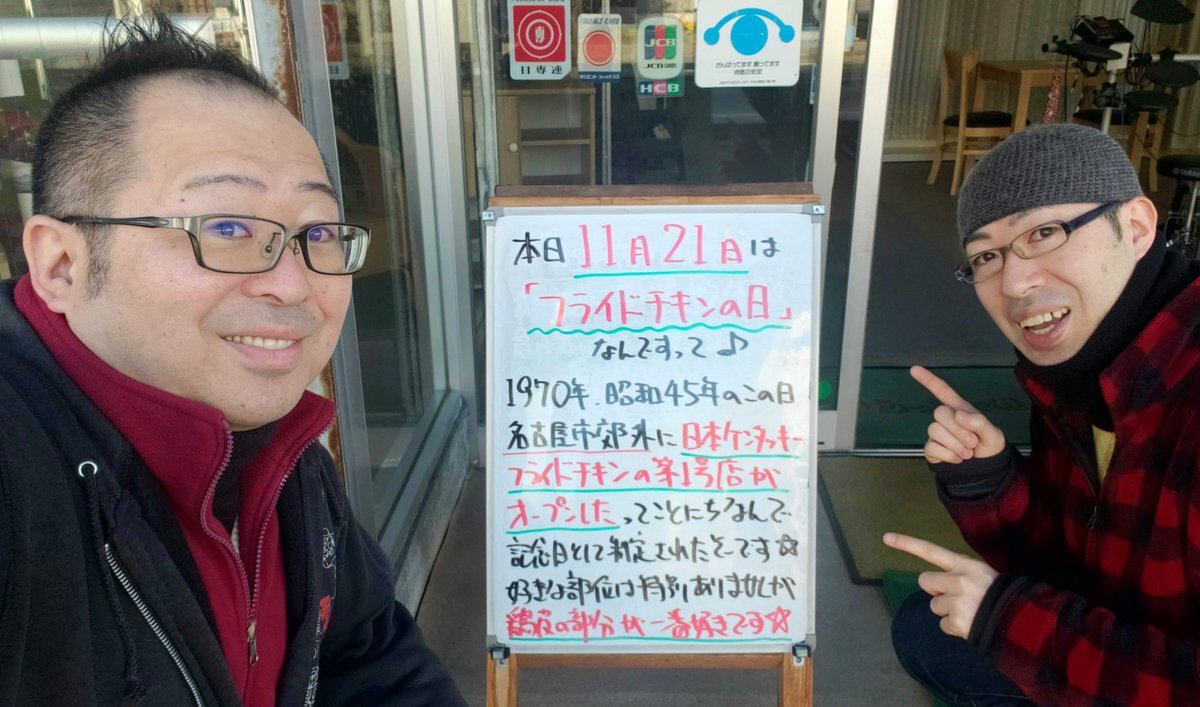 日専連
FINANCE CARD
オリエントファイナンス
JCB
JCB CARDS
HCB
がんばってます 勝ってます
本日 11月21日は
「フライドチキンの日」
なんですって♪
1970年、昭和45年のこの日
名古屋市郊外に日本ケンタッキー
フライドチキンの第1号店が
オープンしたってことにちなんで、
記念日として制定されたそーです☆
好きな部位は特別ありませんが
鶏皮の部分が一番好きです☆
YAMAHA